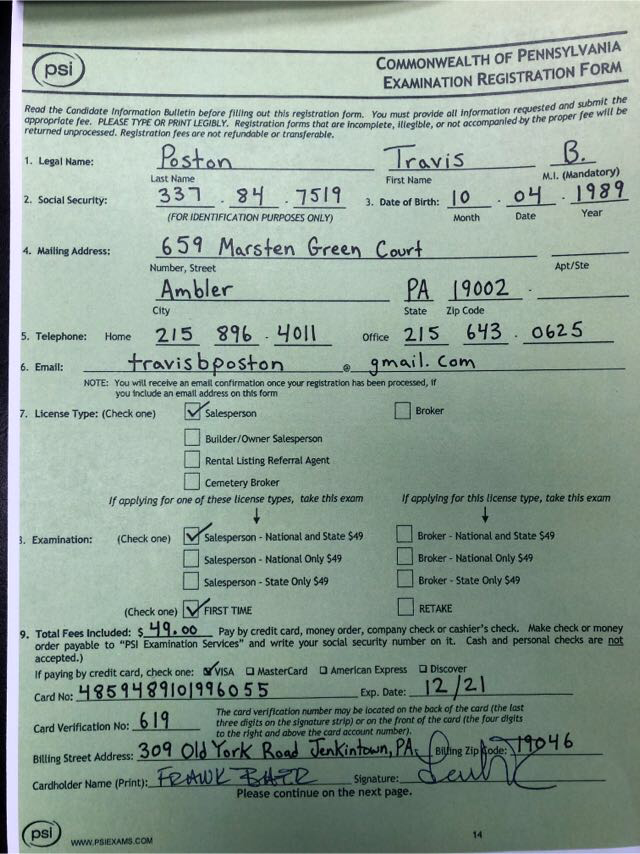 psi
COMMONWEALTH OF PENNSYLVANIA
EXAMINATION REGISTRATION FORM
Read the Candidate Information Bulletin before filling out this registration form. You must provide all information requested and submit the
appropriate fee. PLEASE TYPE OR PRINT LEGIBLY. Registration forms that are incomplete, illegible, or not accompanied by the proper fee will be
returned unprocessed. Registration fees are not refundable or transferable.
1. Legal Name: Poston Travis B.
Last Name First Name M.I. (Mandatory)
2. Social Security: 337 - 84 - 7519 3. Date of Birth: 10 - 04 - 1989
(FOR IDENTIFICATION PURPOSES ONLY) Month Date Year
4. Mailing Address: 659 Marsten Green Court
Number, Street Apt/Ste
Ambler PA 19002 -
City State Zip Code
5. Telephone: Home 215 896 - 4011 Office 215 643 - 0625
6. Email: travisbposton @ gmail.com
NOTE: You will receive an email confirmation once your registration has been processed, if
you include an email address on this form
7. License Type: (Check one) Salesperson Broker
Builder/Owner Salesperson
Rental Listing Referral Agent
Cemetery Broker
If applying for one of these license types, take this exam If applying for this license type, take this exam
8. Examination: (Check one) Salesperson - National and State $49 Broker - National and State $49
Salesperson - National Only $49 Broker - National Only $49
Salesperson - State Only $49 Broker - State Only $49
(Check one) FIRST TIME RETAKE
9. Total Fees Included: $ 49.00 Pay by credit card, money order, company check or cashier's check. Make check or money
order payable to "PSI Examination Services" and write your social security number on it. Cash and personal checks are not
accepted.)
If paying by credit card, check one: VISA MasterCard American Express Discover
Card No: 4859489101996055 Exp. Date: 12/21
Card Verification No: 619 The card verification number may be located on the back of the card (the last
three digits on the signature strip) or on the front of the card (the four digits
to the right and above the card account number).
Billing Street Address: 309 Old York Road Jenkintown, PA Billing Zip Code: 19046
Cardholder Name (Print): FRANK Signature:
Please continue on the next page.
psi
WWW.PSIEXAMS.COM
14